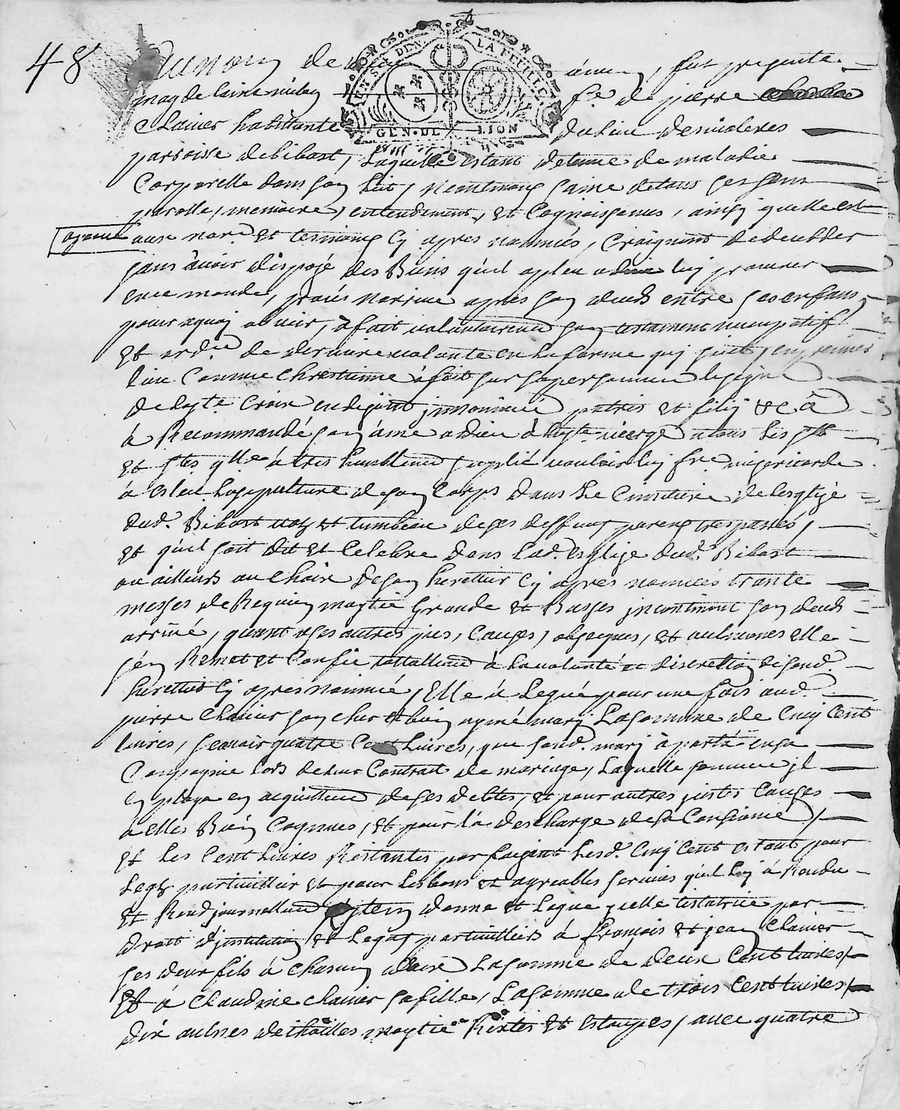 48
Au nom de Dieu amen, fut presente
magdelaine f.e de pierre
Clavier habittante du lieu de
parroisse de bibost, Laquelle estant detenue de maladie
Corporelle dans son lit, neantmoins saine de tous ses sens
parolle, memoire, entendement, et Cognoissence, ainsy quelle est
aux not.re et temoins cy apres nommés, Craignant de decedder
sans avoir disposé des Biens qu'il a pleu a dieu luy procurer
en ce monde, procés n'arrive apres son deceds entre ses enfans,
pour a quoy obvier, a fait volontairement son testament nuncupatif
et ord.ce de derniere volonté en la forme qui suit,
Lieu Comme Chrestienne à fait sur sa personne le signe
de la s.te Croix en disant in nomine patris et filij &c à
à Recommandé son âme a dieu à la s.te vierge a tous les s.ts
et s.tes q.lle à tres humblement suplié vouloir luy f.re misericorde
à esleu La sepulture de son Corps dans Le Cimetiere de l'esglise
dud. Bibost et tumbeau de ses deffuns parens trespassés,
et qu'il soit dit et Celebré dans lad. esglise dud. Bibost
ou ailleurs au Choix de son heretier cy apres nommé trante
messes de Requiem moytié Grande et Basses incontinent son deceds
arrivé, quant a ses autres Causes, obseques, et aulmones elle
s'en Remet et Confie totallement à la volonté et discretion de sond.
heretier cy apres nommé, Elle à Legué pour une fois aud.
pierre Clavier son cher et bien aymé mary La somme de Cinq Cent
livres, scavoir quatre Cent Livres, que sond. mary à porté en sa
Compagnie lors de leur Contrait de mariage, Laquelle somme il
employa en acquittement de ses debtes, et pour autres justes Causes
à elles Bien Cognues, et pour la descharge de sa Consience,
et les Cent Livres Restantes parfaisant lesd. Cinq Cent estant pour
Legz particullier et pour les bons et agreables services qu'il luy à Rendu
et Rend journellement, Item donne et Legue icelle testatrice par
droit d'institution et Legat particulliers à francois et jean Clavier
ses deux fils à Chacun d'eux La somme de deux Cent Livres,
Et à Claudine Clavier sa fille, La somme de trois Cent Livres,
dix aulnes de thoilles moytié Rittes et estoupes, avec quatre
GEN. DE LION